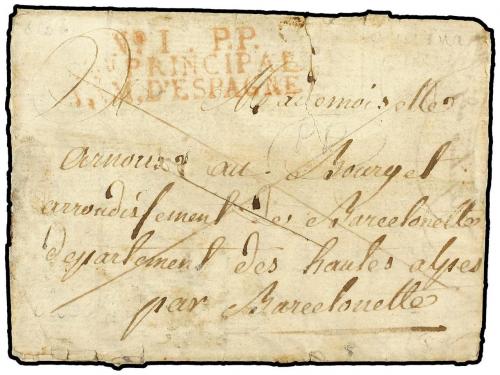 No. 1 P.P.
PRINCIPAL
ARM. D'ESPAGNE
Mademoiselle
arnoux au Bourget
arrondissement de Barcelonette
departement des hautes alpes
par Barcelonette